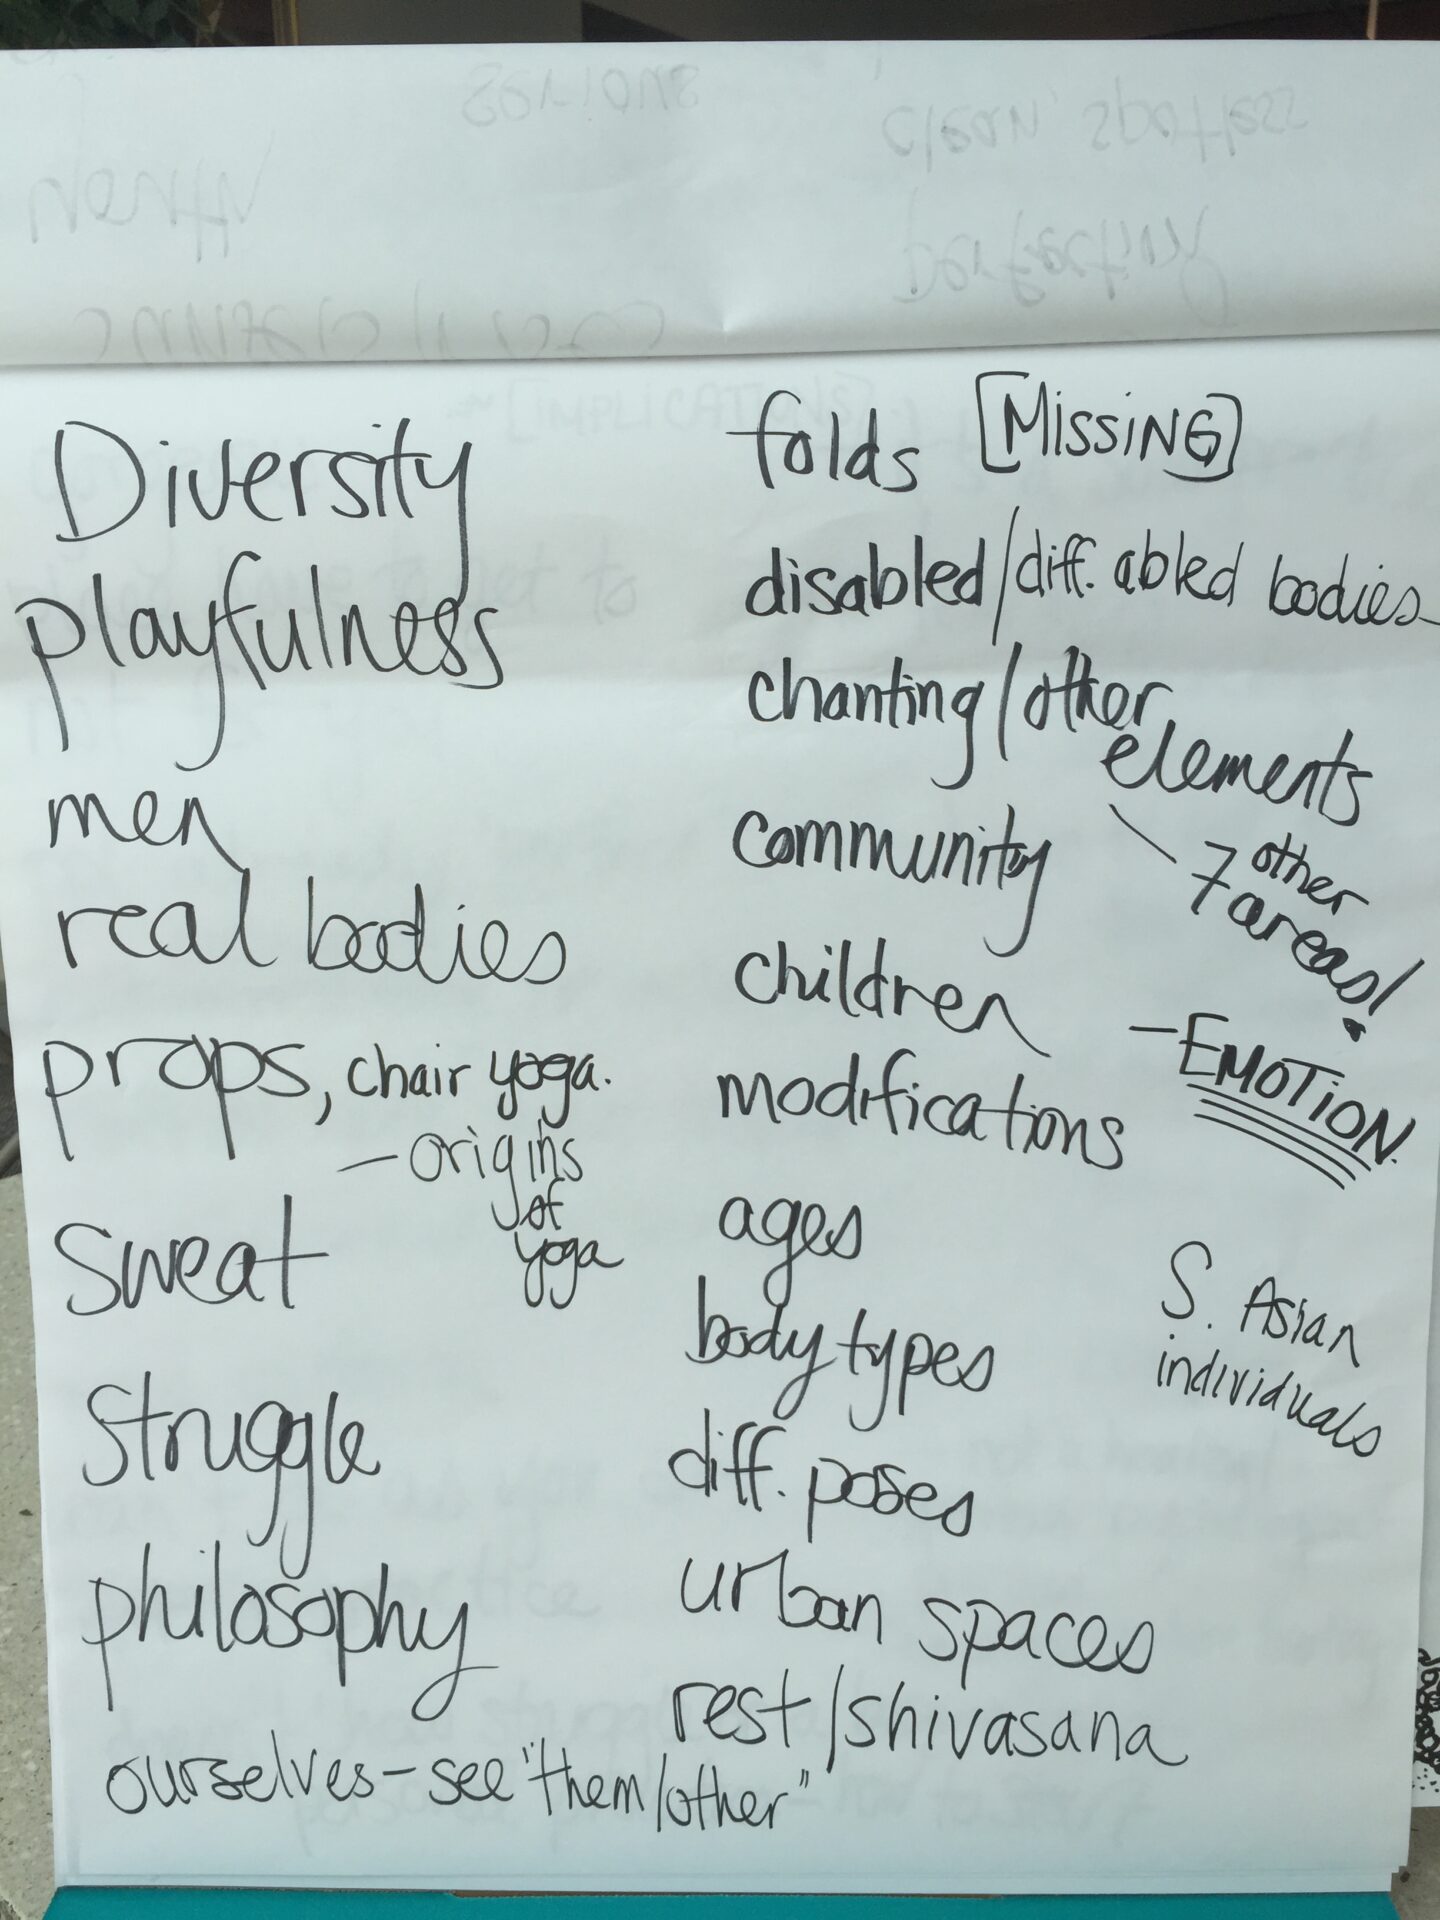 Diversity
playfulness
men
real bodies
props, chair yoga.
- origins
of
yoga
sweat
struggle
philosophy
ourselves - see "them/other"
[MISSING]
folds
disabled/diff. abled bodies
chanting/other
elements
\ 7 other
areas!
community
children
- EMOTION.
modifications
ages
S. Asian
individuals
body types
diff. poses
urban spaces
rest/shivasana